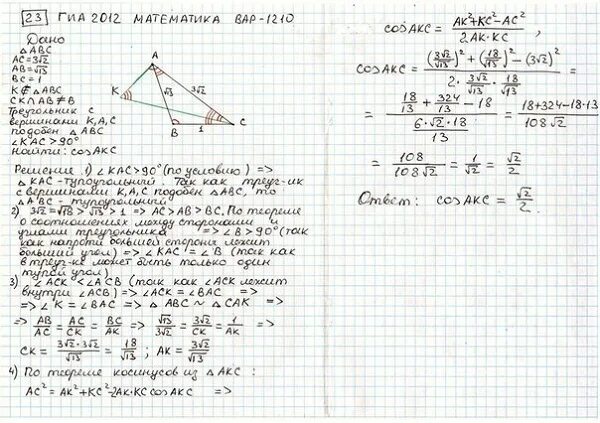 23 ГИА 2012 МАТЕМАТИКА ВАР-1210
Дано
△ABC
AC=3√2
AB=√13
BC=1
K∉△ABC
CK∩AB≠B
Треугольник с
вершинами K,A,C
подобен △ABC
∠KAC>90°
Найти: cosAKC
A
K
B
C
√13
3√2
1
Решение 1) ∠KAC>90° (по условию) =>
△KAC-тупоугольный. Так как треуг-ик
с вершинами K,A,C подобен △ABC, то
△ABC - тупоугольный
2) 3√2=√18>√13>1 => AC>AB>BC. По теореме
о соотношениях между сторонами и
углами треугольника => ∠B>90° (так
как напротив большей стороны лежит
больший угол) => ∠KAC = ∠B (так как
в треуг-ке может быть только один
тупой угол)
3) ∠ACK <∠ACB (так как ∠ACK лежит
внутри ∠ACB) => ∠ACK = ∠BAC =>
=> ∠K = ∠BAC => △ABC ~ △CAK =>
=> AB/AC = AC/CK = BC/AK => √13/3√2 = 3√2/CK = 1/AK =>
CK = 3√2·3√2/√13 = 18/√13 ; AK = 3√2/√13
4) По теореме косинусов из △AKC:
AC² = AK² + KC² - 2AK·KC cosAKC =>
cosAKC = AK²+KC²-AC²/2AK·KC ,
cosAKC = (3√2/√13)² + (18/√13)² - (3√2)²/2·3√2/√13·18/√13 =
= 18/13 + 324/13 - 18/6√2·18/13 = 18+324-18·13/108√2 =
= 108/108√2 = 1/√2 = √2/2
Ответ: cosAKC = √2/2.